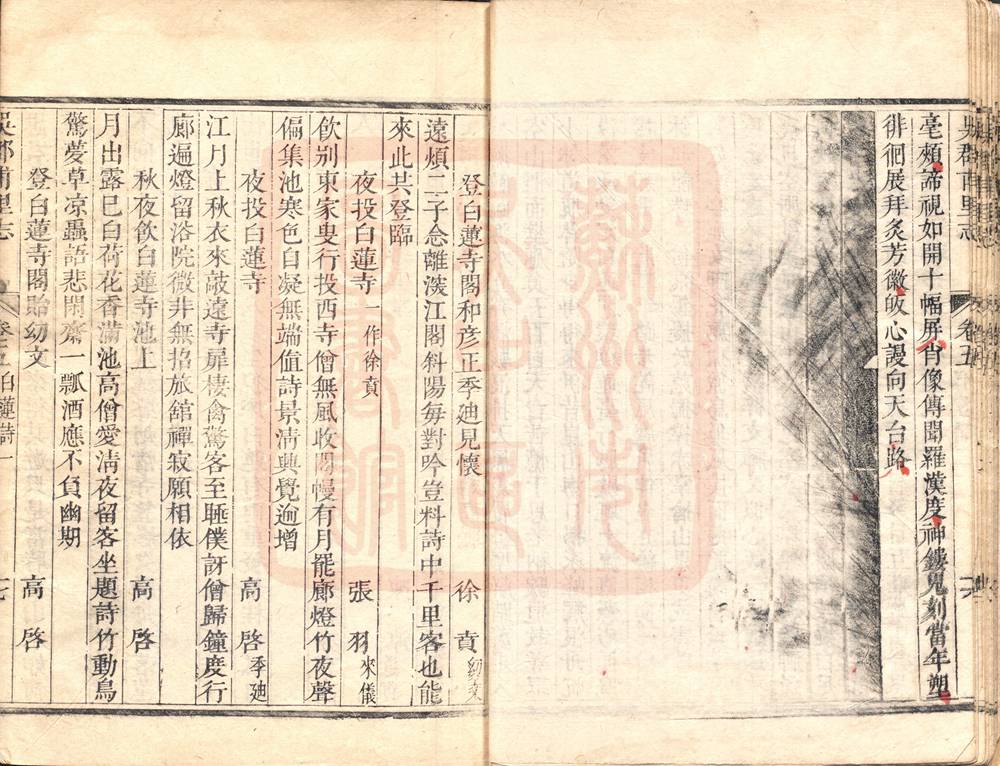 吳郡甫里志
卷五
毫頰諦視如開十幅屏肖像傳聞羅漢度神鏤鬼刻當年塑
徘徊展拜炙芳徽皈心謾向天台路
登白蓮寺閣和彦正季廸見懷 徐賁幼文
遠煩二子念離𣺌江閣斜陽每對吟豈料詩中千里客也能
來此共登臨
夜投白蓮寺一作徐賁 張羽來儀
飲别東家叟行投西寺僧無風收閣幔有月罷廊燈竹夜聲
偏集池寒色自凝無端值詩景清興覺逾增
夜投白蓮寺 高啓季廸
江月上秋衣來敲遠寺扉棲禽驚客至睡僕訝僧歸鐘度行
廊遍燈留浴院微非無招旅舘禪寂願相依
秋夜飲白蓮寺池上 高啓
月出露已白荷花香滿池高僧愛清夜留客坐題詩竹動鳥
驚夢草凉蟲語悲閑齋一瓢酒應不負幽期
登白蓮寺閣貽幼文 高啓
吳郡甫里志
卷五 白蓮詩一
七
蘇州市
吳中區
圖書館